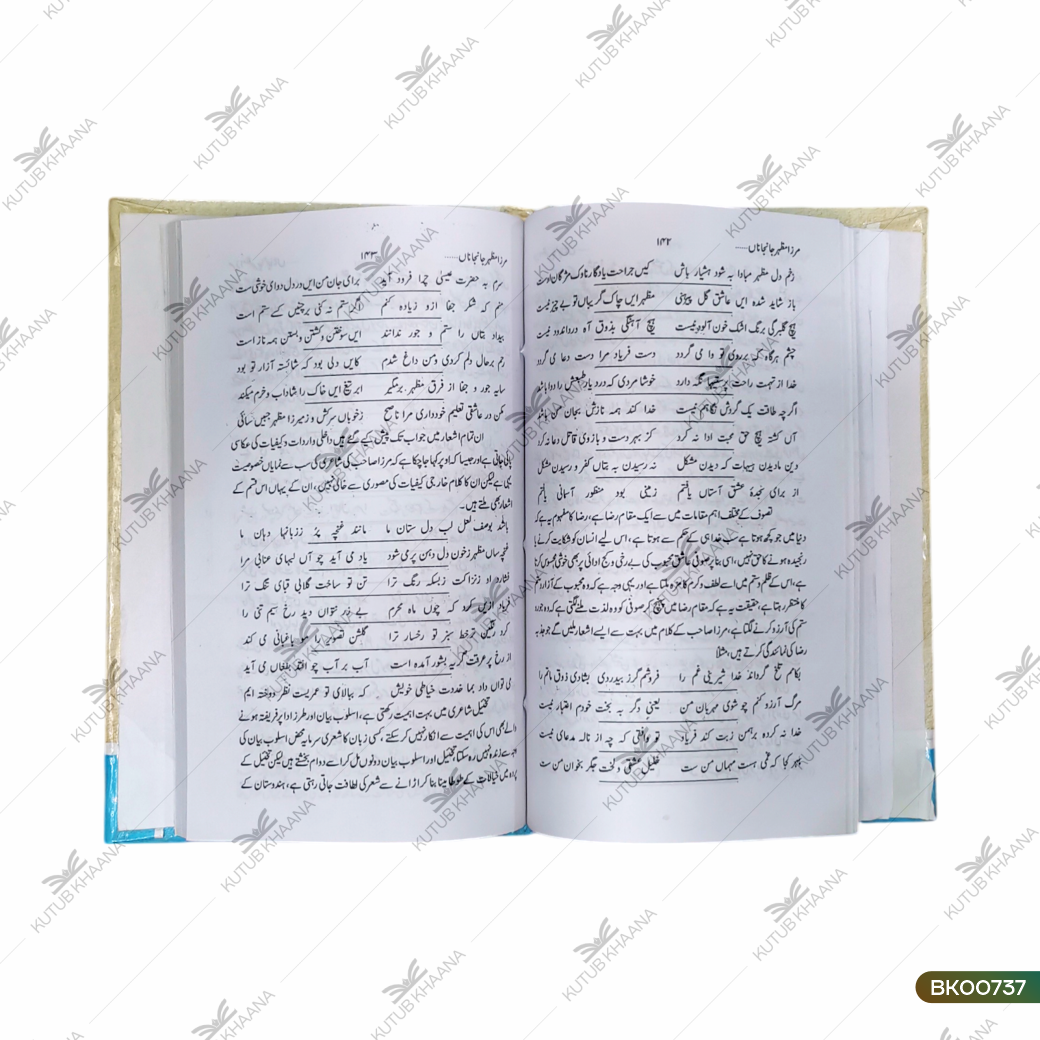 مرزا مظہر جانجاناں......
۱۴۲
زخم دل مظہر مبادا بہ شود ہشیار باش کیں جراحت یادگار ناوک مژگان اوست
باز شاید شدہ ایں عاشق گل پیرہنی مظہر ایں چاک گریباں تو بے چیز نیست
ہیچ گلبرگی برنگ اشک خون آلود نیست ہیچ آہنگی بذوق آہ درد اندود نیست
چشم ہرگاہ کہ برروی تو وا می گردد دست فریاد مرا دست دعا می گردد
خدا از تہمت راحت نگہ دارد خوشا مردی کہ درد یار طبعش را دوا باشد
اگرچہ طاقت یک گردش نگاہم نیست خدا کند ہمہ نازش بجان من باشد
آں کشتہ ہیچ حق محبت ادا نہ کرد کز بہر دست و بازوی قاتل دعا نہ کرد
دین ما دیدن ہیہات کہ دیدن مشکل نہ رسیدن بہ بتاں کفر و رسیدن مشکل
از برای سجدۂ عشق آستاں یافتم زمینی بود منظور آسمانی یافتم
تصوف کے مختلف اہم مقامات میں سے ایک مقام رضا ہے، رضا کا مفہوم یہ ہے کہ
دنیا میں جو کچھ ہوتا ہے سب خدا ہی کے حکم سے ہوتا ہے، اس لیے انسان کو شکایت کرنے یا
رنجیدہ ہونے کا حق نہیں، اسی بنا پر صوفی عاشق محبوب کی بے رخی و کج ادائی پر بھی خوشی محسوس کرتا
ہے، اس کے ظلم و ستم میں اسے لطف و کرم کا مزہ ملتا ہے اور یہی وجہ ہے کہ وہ محبوب کے آزار و ستم
کا منتظر رہتا ہے، حقیقت یہ ہے کہ مقام رضا میں پہنچ کر صوفی کو وہ لذت ملنے لگتی ہے کہ وہ جور و
ستم کی آرزو کرنے لگتا ہے، مرزا صاحب کے کلام میں بہت سے ایسے اشعار ملیں گے جو جذبہ
رضا کی نمائندگی کرتے ہیں، مثلاً
بکام تلخ گرداند خدا شیرینی غم را فروشم گرز بیدردی بشادی ذوق ماتم را
مرگ آرزو کنم چو شوی مہربان من یعنی دگر بہ بخت خودم اعتبار نیست
خدا نہ کردہ برہمن زبت کند فریاد تو واقفی کہ چہ از نالہ مدعای نیست
بہر کجا کہ غمی ہست مہماں من ست خلیل عشقم و لخت جگر بخوان من ست
مرزا مظہر جانجاناں......
۱۴۳
سرم بہ حضرت عیسیٰ چرا فرود آید برای جان من ایں درد دل دوای خوشی ست
منم کہ شکر جفا ازو زیادہ کنم اگر ستم نہ کنی برچنیں کسے ستم است
بیداد بتاں را ستم و جور ندانند ایں سوختن و کشتن و بستن ہمہ ناز است
رحم برحال دلم کردی و من داغ شدم کایں دلی بود کہ شائستہ آزار تو بود
سایہ جور و جفا از فرق مظہر برمگیر ابر تیغ ایں خاک را شاداب و خرم میکند
مکن در عاشقی تعلیم خودداری مرا ناصح زخوباں سرکش و زمیرزا مظہر جبیں سائی
ان تمام اشعار میں جو اب تک پیش کیے گئے ہیں داخلی واردات و کیفیات کی عکاسی
پائی جاتی ہے اور جیسا کہ اوپر کہا جا چکا ہے کہ مرزا صاحب کی شاعری کی سب سے نمایاں خصوصیت
یہی ہے لیکن ان کا کلام خارجی کیفیات کی مصوری سے خالی نہیں، ان کے یہاں اس قسم کے
اشعار بھی ملتے ہیں۔
باشد بوصف لعل لب دل ستان ما مانند غنچہ پر ززبانہا دہان ما
غنچہ ساں مظہر زخون دل دہن پرمی شود یاد می آید چو آں لبہای عنابی مرا
فشارد از نزاکت زبسکہ رنگ ترا تن تو ساخت گلابی قبای تنگ ترا
فریاد ازیں کہ چوں ماہ محرم بے نتواں دید رخ سیم تنی را
کرد رنگین ترخط سبز تو رخسار ترا گلشن تصویر را باغبانی می کند
از رخ پر عرقت گریہ بشور آمدہ است آب بر آب چو افتد بفغاں می آید
می تواں داد بما خدمت خیاطی خویش کہ ببالای تو عمریست نظر دوختہ ایم
تخئیل شاعری میں بہت اہمیت رکھتی ہے، اسلوب بیان اور طرز ادا پر فریفتہ ہونے
والے بھی اس کی اہمیت سے انکار نہیں کر سکتے، کسی زبان کا شعری سرمایہ محض اسلوب بیان کی
وجہ سے زندہ نہیں رہ سکتا، تخئیل اور اسلوب بیان دونوں مل کر اسے دوام بخشتے ہیں لیکن تخئیل کے
پردہ میں خیالات کے طوطا مینا بنا کر اڑانے سے شعر کی لطافت جاتی رہتی ہے، ہندوستان کے
KUTUB KHAANA
BK00737